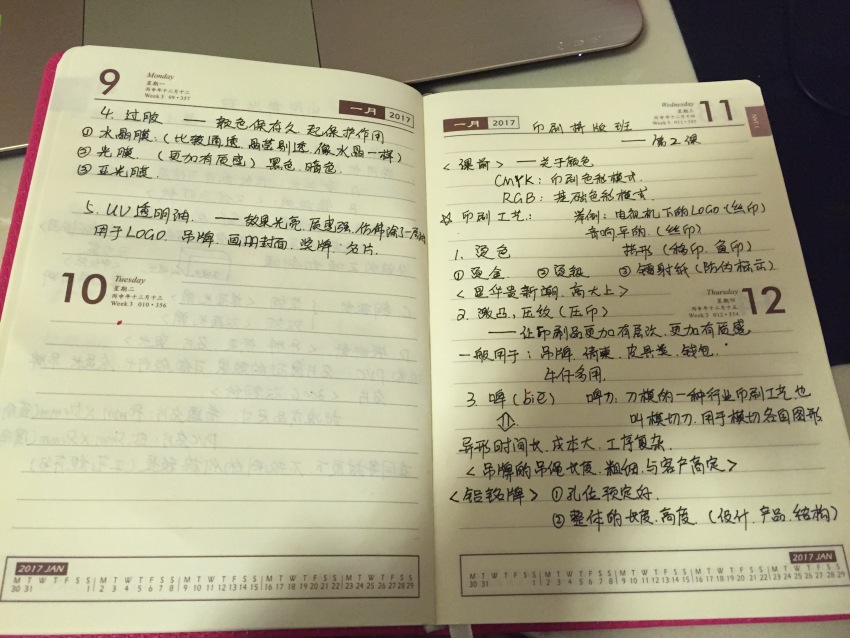 9
Monday
星期一
丙申年十二月十二
Week 3 09・357
一月 2017
4. 过胶 —— 较色保存久.起保护作用
① 水晶膜:(比较通透.晶莹剔透.像水晶一样)
② 光膜.(更加有质感)黑色.暗色.
③ 亚光膜.
5. UV透明油. —— 效果光亮.质感强,仿佛涂了一层油
用于LOGO.吊牌.画册封面.奖牌.名片.
10
Tuesday
星期二
丙申年十二月十三
Week 3 010・356
2017 JAN
M T W T F S S M T W T F S S M T W T F S S M T W T F S S M T W T F S S
30 31 1 2 3 4 5 6 7 8 9 10 11 12 13 14 15 16 17 18 19 20 21 22 23 24 25 26 27 28 29
一月 2017
Wednesday
星期三
丙申年十二月十四
Week 3 011・355
11
JAN.
印刷排版班
—— 第2课
<课前> —— 关于颜色
CMYK:印刷色彩模式.
RGB:基础色彩模式.
☆ 印刷工艺: 举例:电视机下的LOGO(丝印)
音响平的.(丝印)
1. 烫色 拱形(移印.鱼印)
① 烫金. ② 烫银 ③ 镭射纸(防伪标示)
<显华贵新潮.高大上>
Thursday
星期四
丙申年十二月十五
Week 3 012・354
12
2. 激凸,压纹(压印)
—— 让印刷品更加有层次.更加有质感
一般用于:吊牌.请柬.皮具类.钱包.
牛仔多用.
3. 啤(bie) 啤力:刀模的一种行业印刷工艺.也
叫模切刀.用于模切各国图形
异形时间长.成本大.工序复杂.
<吊牌的吊绳长度.粗细.与客户商定>
<铝铭牌> ① 孔位预定好.
② 整体的长度.高度.(设计.产品.结构)
2017 JAN
M T W T F S S M T W T F S S M T W T F S S M T W T F S S M T W T F S S
30 31 1 2 3 4 5 6 7 8 9 10 11 12 13 14 15 16 17 18 19 20 21 22 23 24 25 26 27 28 29